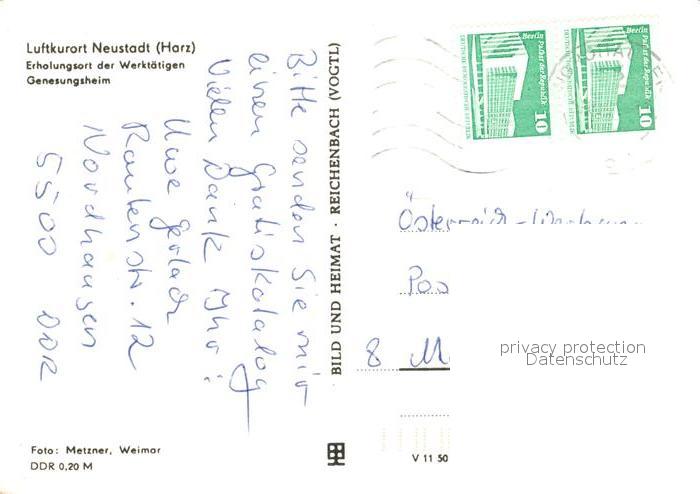 Luftkurort Neustadt (Harz)
Erholungsort der Werktätigen
Genesungsheim
Bitte senden Sie mir
einen Gratiskatalog
Vielen Dank Ihr:
Uwe Gerlach
Rautenstr. 12
Nordhausen
5500 DDR
Foto: Metzner, Weimar
DDR 0,20 M
BILD UND HEIMAT · REICHENBACH (VOGTL)
V 11 50
Berlin Palast der Republik
10
DEUTSCHE DEMOKRATISCHE REPUBLIK
Berlin Palast der Republik
10
DEUTSCHE DEMOKRATISCHE REPUBLIK
Österreich -
Pos
8 M
privacy protection
Datenschutz